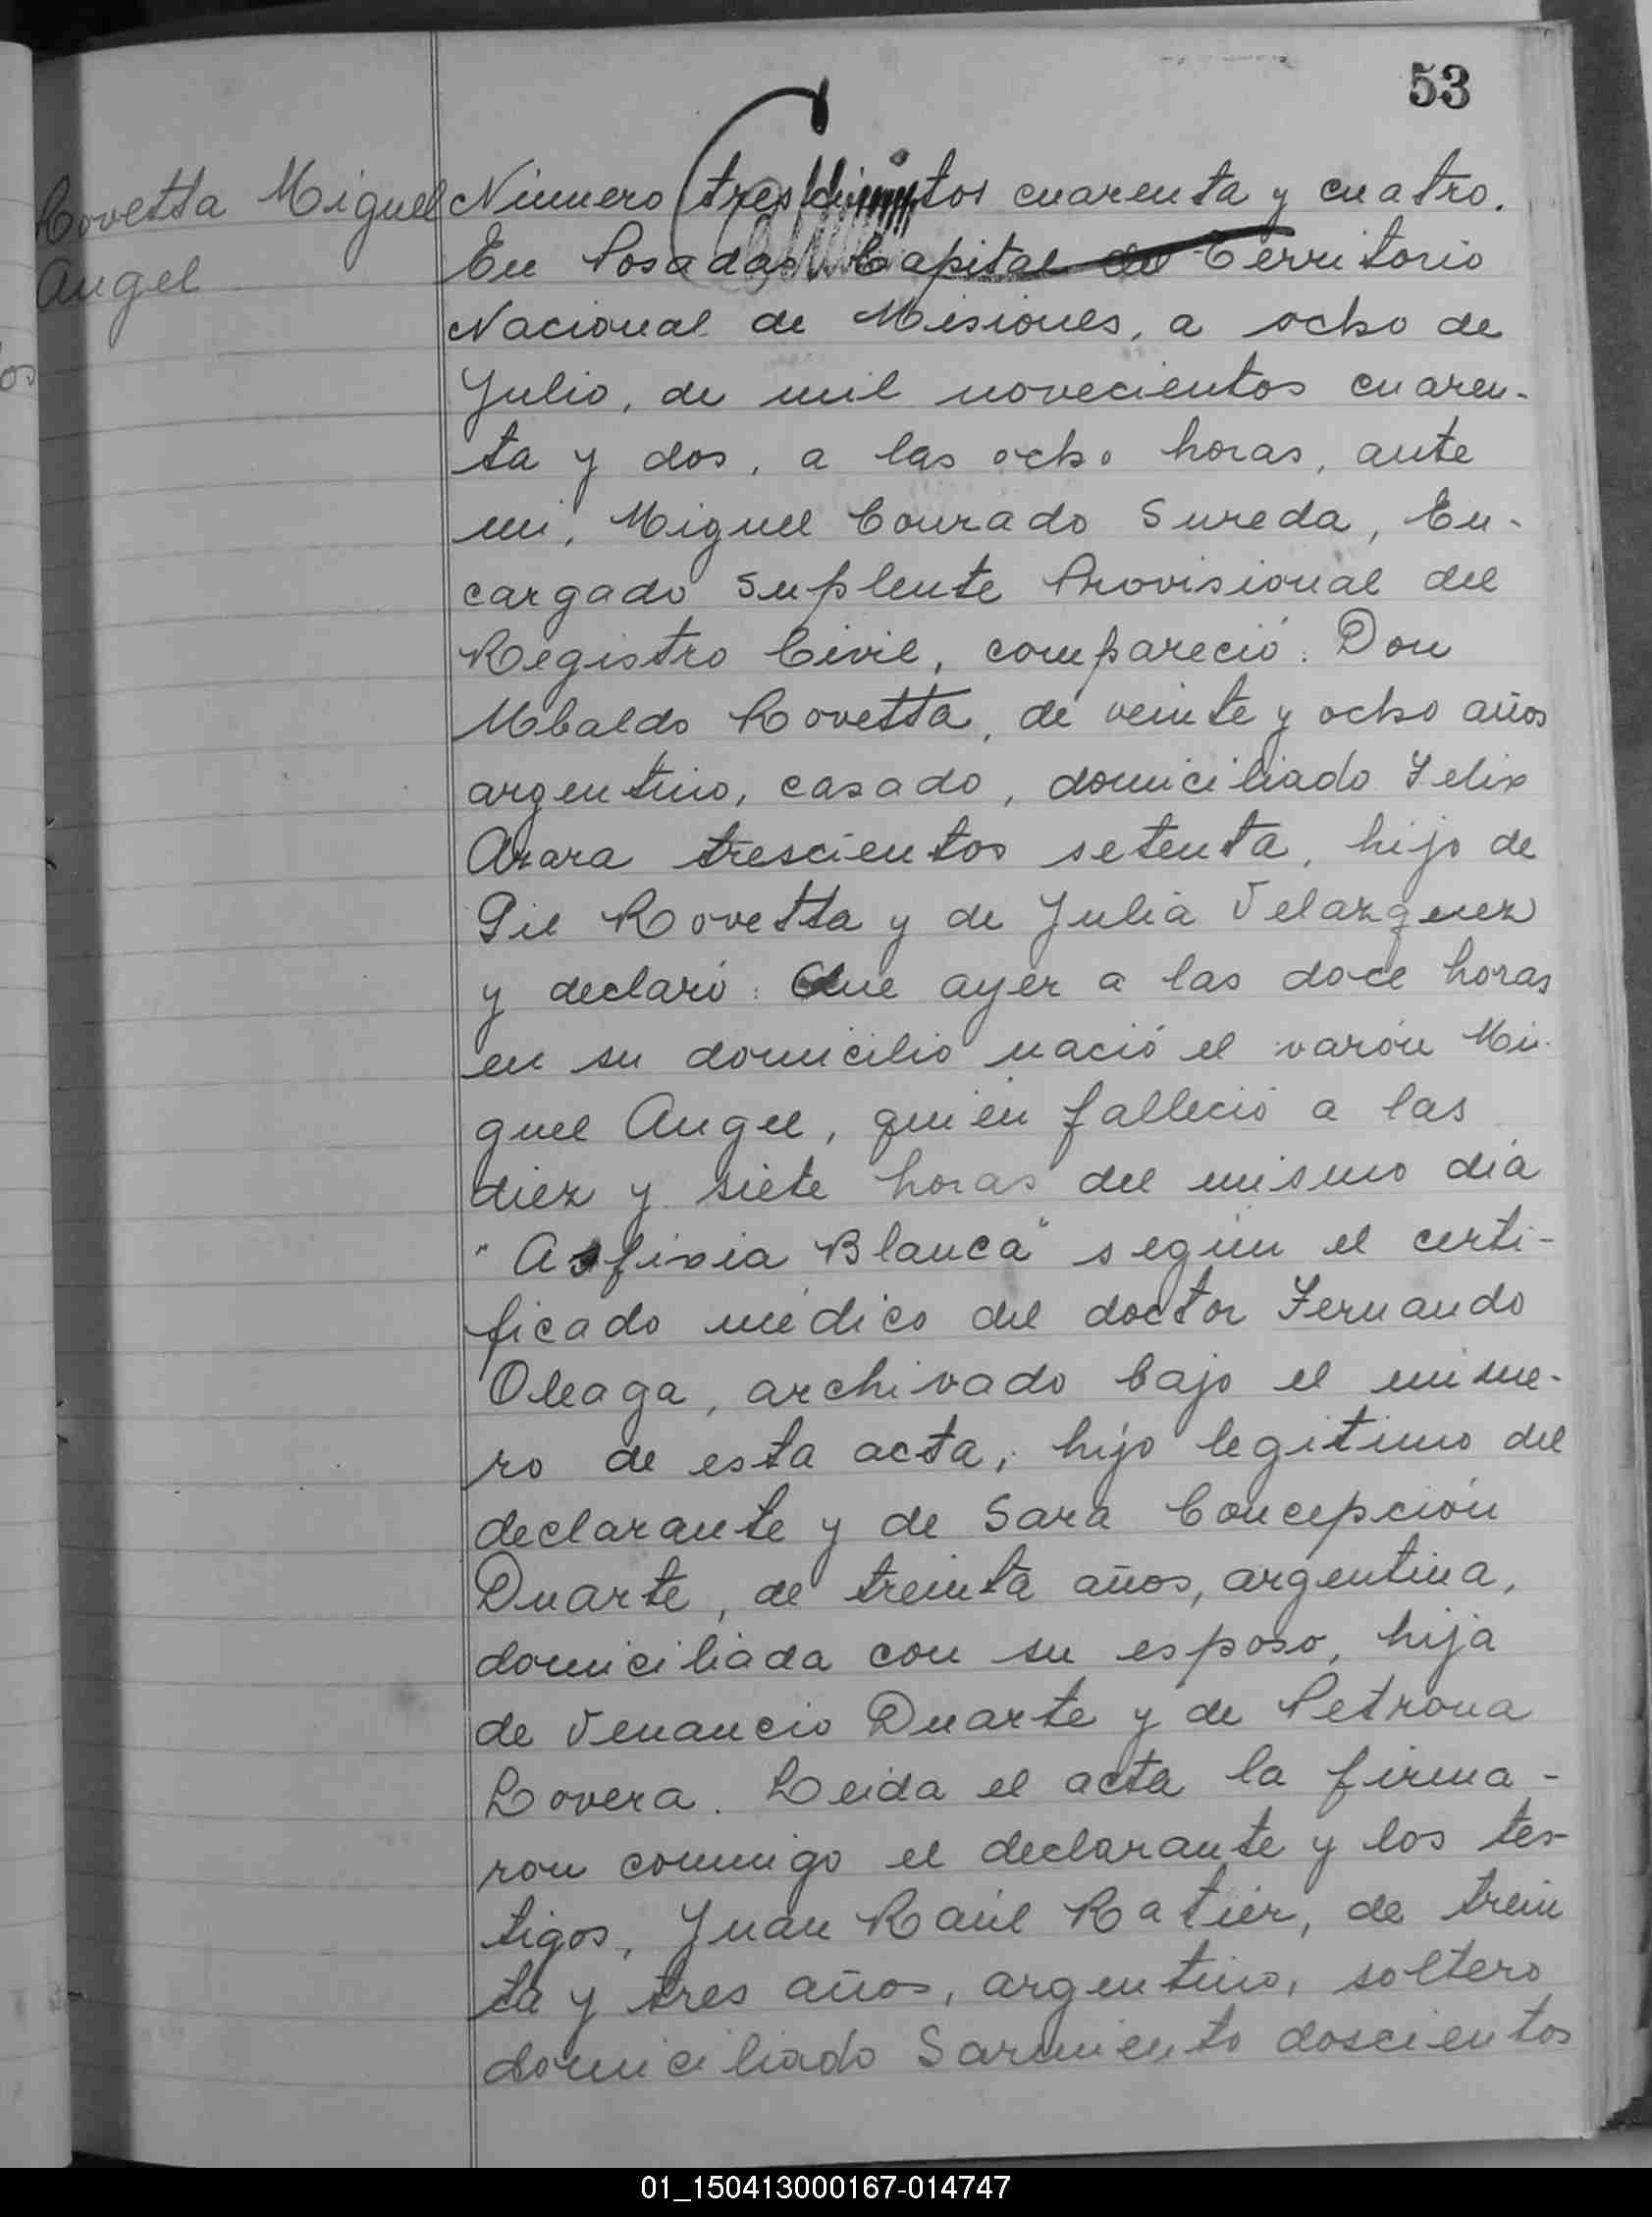 53
Rovetta Miguel
Angel
Número trescientos cuarenta y cuatro.
En Posadas Capital del Territorio
Nacional de Misiones, a ocho de
Julio, de mil novecientos cuaren-
ta y dos, a las ocho horas, ante
mi, Miguel Conrado Sureda, En-
cargado Suplente Provisional del
Registro Civil, compareció: Don
Ubaldo Rovetta, de veinte y ocho años
argentino, casado, domiciliado Felix
Azara trescientos setenta, hijo de
Gil Rovetta y de Julia Velazquez
y declaró: Que ayer a las doce horas
en su domicilio nació el varón Mi-
guel Angel, quién falleció a las
diez y siete horas del mismo día
"Asfixia Blanca" según el certi-
ficado médico del doctor Fernando
Oleaga, archivado bajo el núme-
ro de esta acta, hijo legitimo del
declarante y de Sara Concepción
Duarte, de treinta años, argentina,
domiciliada con su esposo, hija
de Venancio Duarte y de Petrona
Lovera. Leida el acta la firma-
ron conmigo el declarante y los tes-
tigos, Juan Raúl Ratier, de trein
ta y tres años, argentino, soltero
domiciliado Sarmiento doscientos
01_150413000167-014747